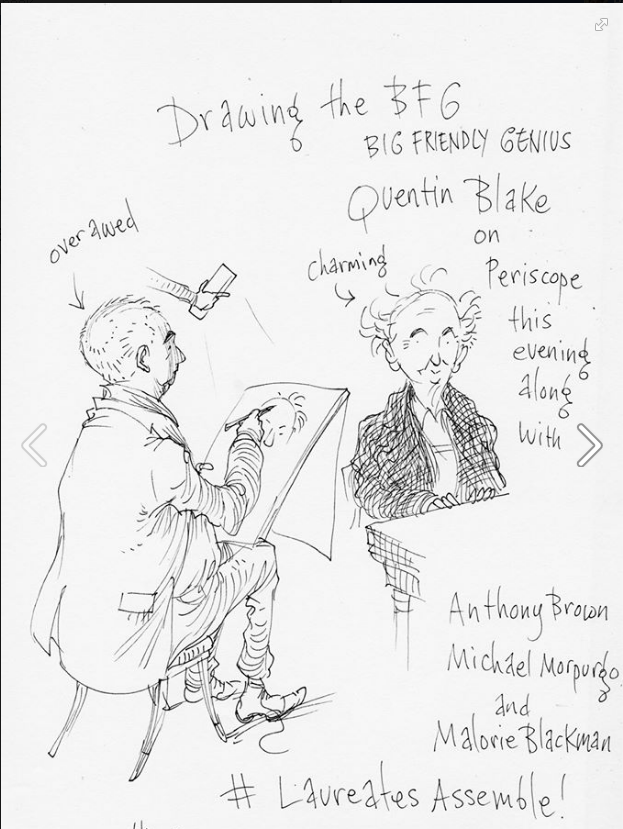 Drawing the BFG
BIG FRIENDLY GENIUS
Quentin Blake
on
Periscope
this
evening
along
with
overawed
charming
Anthony Brown
Michael Morpurgo
and
Malorie Blackman
# Laureates Assemble!